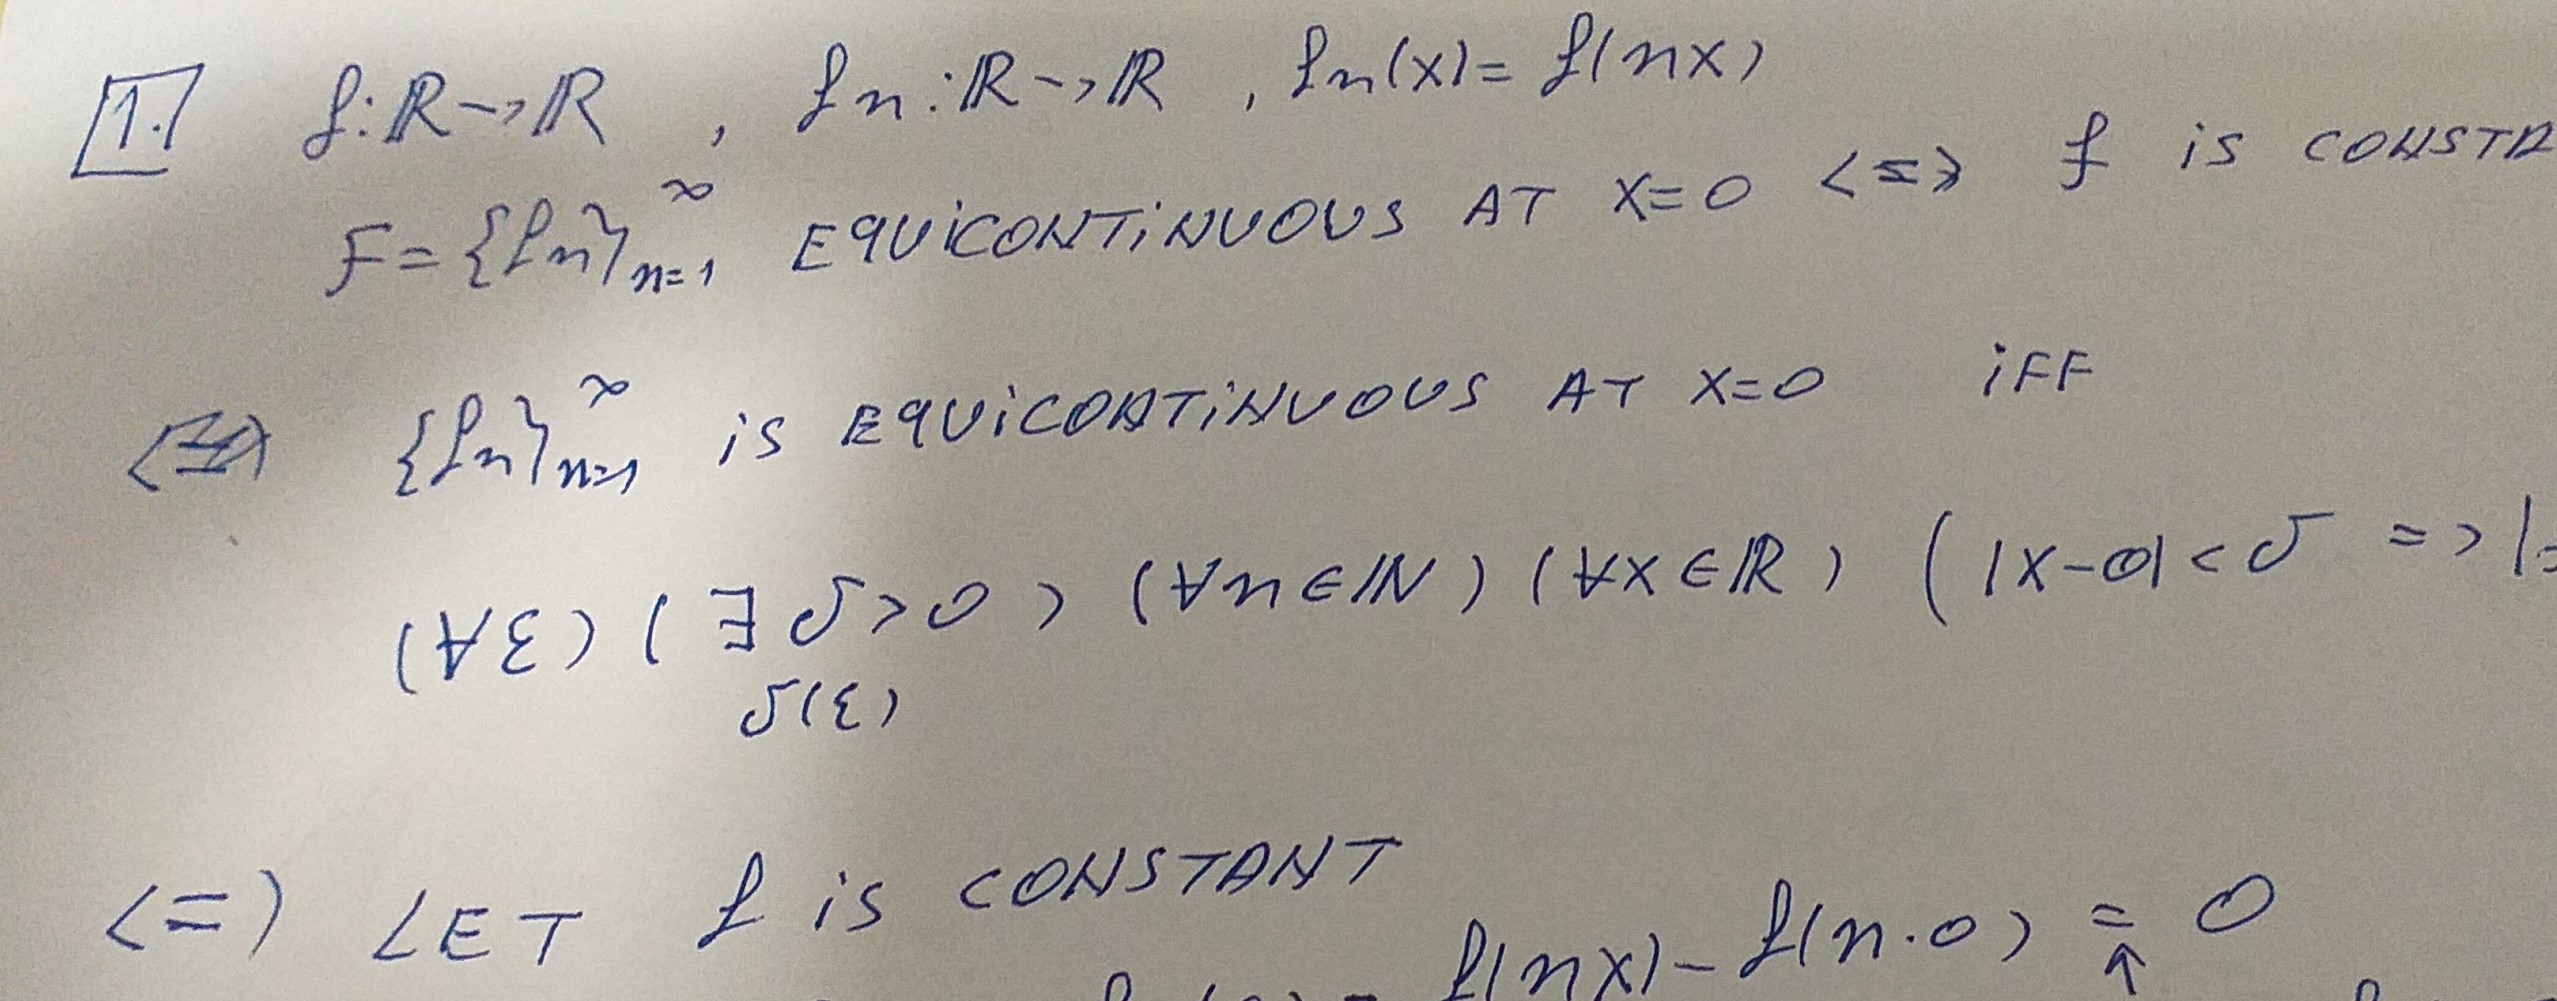 1. f:ℝ→ℝ , fn:ℝ→ℝ , fn(x)=f(nx)
F={fn}_{n=1}^∞ EQUiCONTiNUOUS AT X=0 <=> f is CONSTA
{fn}_{n=1}^∞ is EQUiCONTiNUOUS AT X=0 iFF
(∀ε) (∃δ>0) (∀n∈ℕ) (∀x∈ℝ) (|X-0|<δ => |
δ(ε)
<=) LET f is CONSTANT
f(nx)-f(n·0) = 0
↑